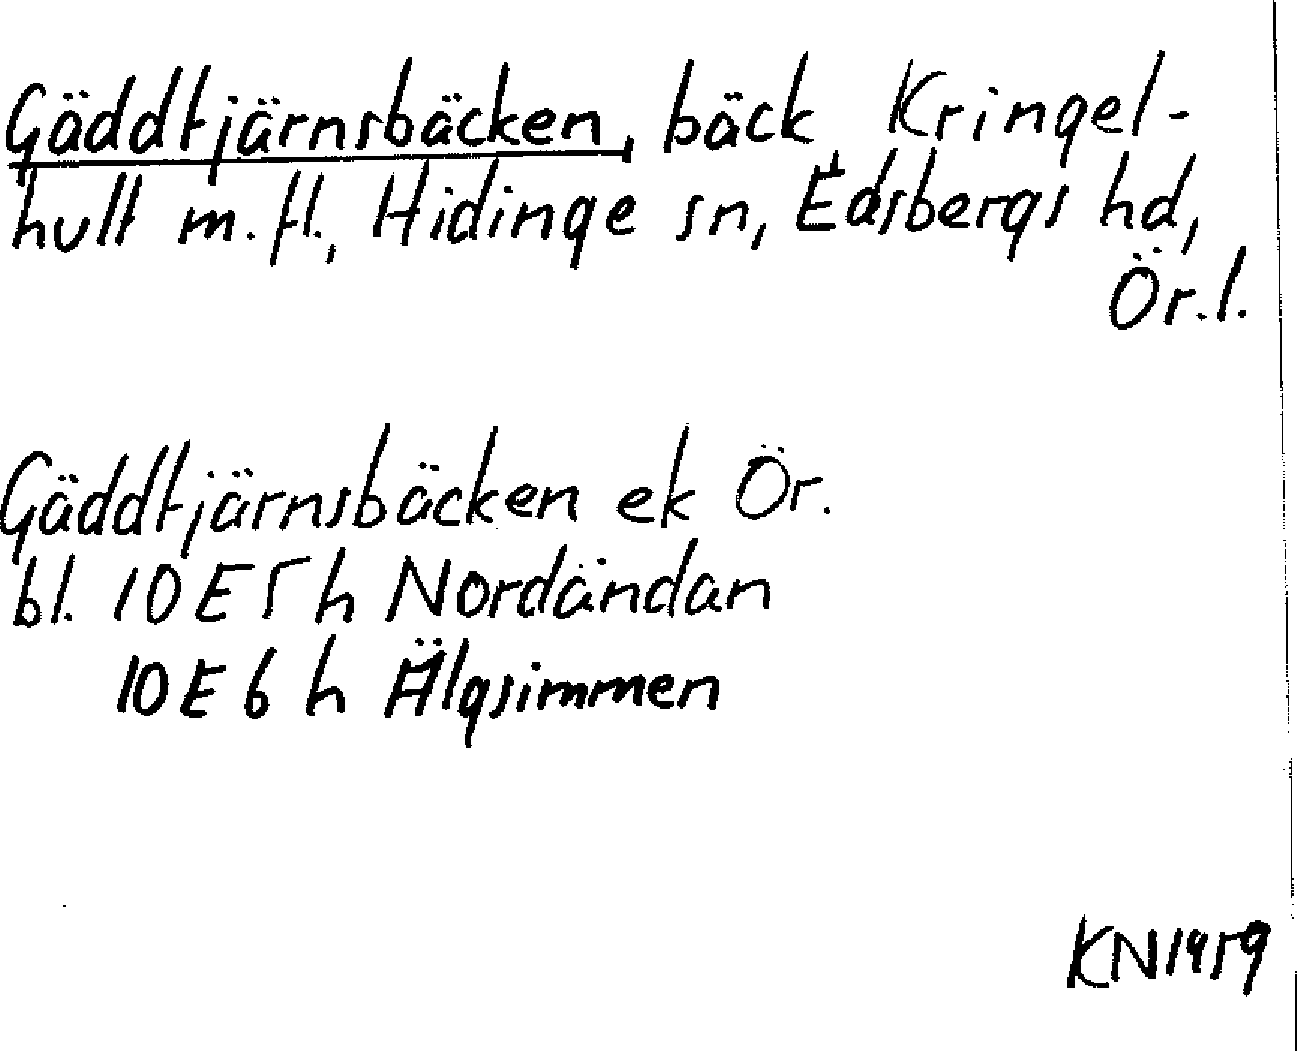 Gäddtjärnsbäcken, bäck, Kringel-
hult m.fl., Hidinge sn, Edsbergs hd,
Ör.l.
Gäddtjärnsbäcken ek Ör.
bl. 10 E 5 h Nordändan
10 E 6 h Älgsimmen
KN 1959